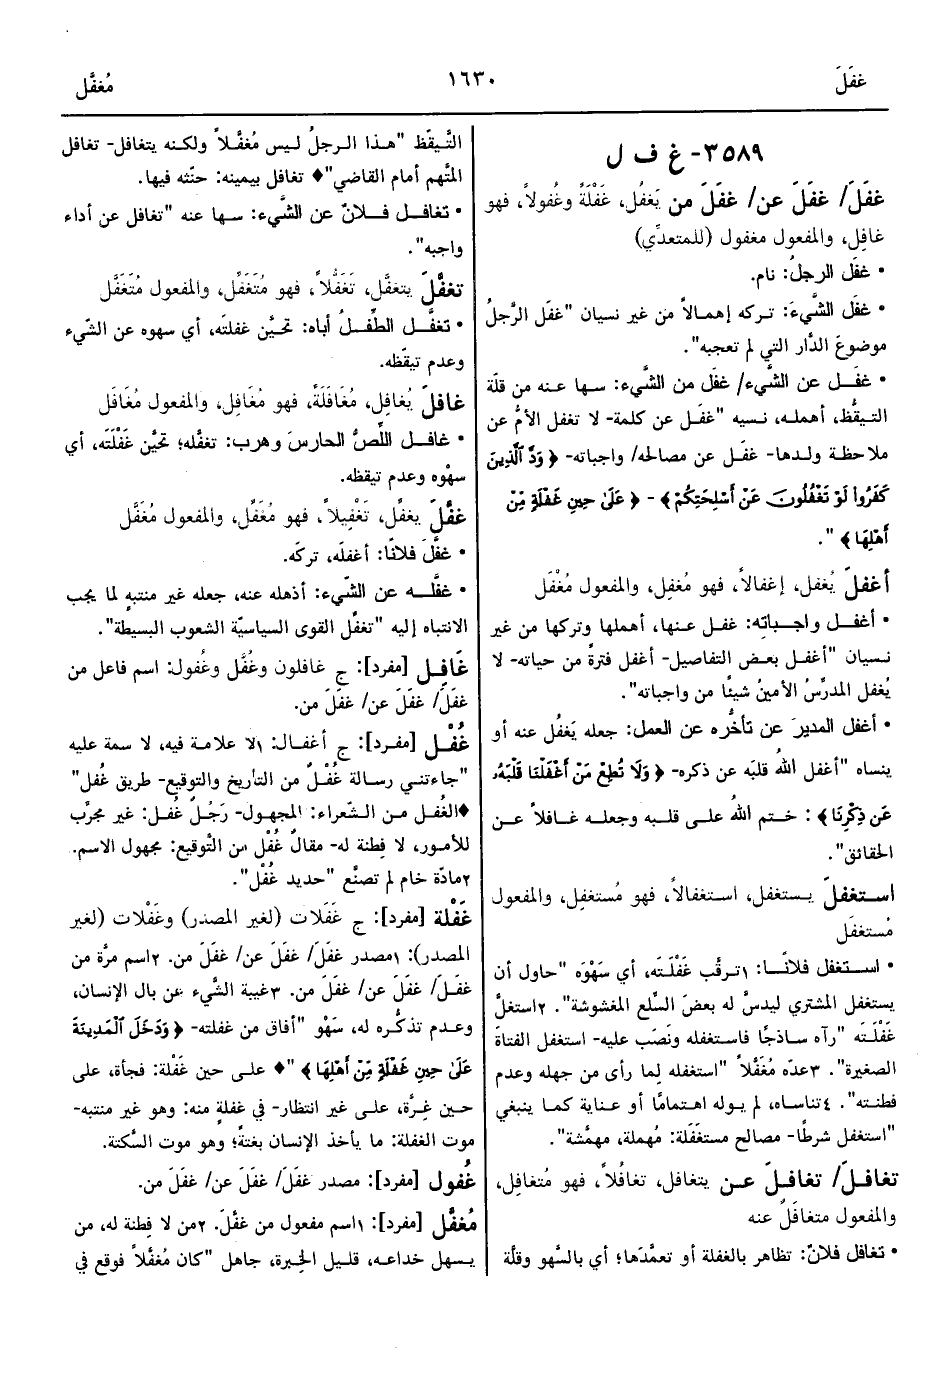 غفَلَ
١٦٣٠
مُغفَّل
٣٥٨٩- غ ف ل
غفَلَ/ غفَلَ عن/ غفَلَ من يَغفُل، غَفْلَةً وغُفولاً، فهو
غافِل، والمفعول مغفول (للمتعدِّي)
• غفَل الرجلُ: نام.
• غفَل الشَّيءَ: تركه إهمالاً من غير نسيان "غفَل الرَّجلُ
موضوعَ الدَّار التي لم تعجبه".
• غفَل عن الشَّيء/ غفَل من الشَّيء: سها عنه من قلّة
التيقُّظ، أهمله، نسيه "غفَل عن كلمة- لا تغفل الأمُّ عن
ملاحظة ولدها- غفَل عن مصالحه/ واجباته- ﴿ وَدَّ ٱلَّذِينَ
كَفَرُواْ لَوْ تَغْفُلُونَ عَنْ أَسْلِحَتِكُمْ ﴾- ﴿ عَلَىٰ حِينِ غَفْلَةٍ مِّنْ
أَهْلِهَا ﴾ ".
أغفلَ يُغفل، إغفالاً، فهو مُغفِل، والمفعول مُغْفَل
• أغفل واجباتِه: غفل عنها، أهملها وتركها من غير
نسيان "أغفل بعض التفاصيل- أغفل فترةً من حياته- لا
يُغفل المدرِّسُ الأمينُ شيئًا من واجباته".
• أغفل المديرَ عن تأخُّره عن العمل: جعله يَغفُل عنه أو
ينساه "أغفل اللهُ قلبَه عن ذكره- ﴿ وَلَا تُطِعْ مَنْ أَغْفَلْنَا قَلْبَهُۥ
عَن ذِكْرِنَا ﴾ : ختم اللهُ على قلبه وجعله غافلاً عن
الحقائق".
استغفلَ يستغفل، استغفالاً، فهو مُستغفِل، والمفعول
مُستغفَل
• استغفل فلانًا: ١ترقَّب غَفْلَتَه، أي سَهْوَه "حاول أن
يستغفل المشتري ليدسَّ له بعضَ السِّلع المغشوشة". ٢استغلَّ
غَفْلَتَه "رآه ساذجًا فاستغفله ونَصَب عليه- استغفل الفتاة
الصغيرة". ٣عدّه مُغَفَّلاً "استغفله لِما رأى من جهله وعدم
فطنته". ٤تناساه، لم يوله اهتمامًا أو عناية كما ينبغي
"استغفل شرطًا- مصالح مستغفَلة: مُهملة، مهمَّشة".
تغافلَ/ تغافلَ عن يتغافل، تغافُلاً، فهو مُتغافِل،
والمفعول متغافَلٌ عنه
• تغافل فلانٌ: تظاهر بالغفلة أو تعمَّدَها؛ أي بالسَّهو وقلَّة
التَّيقّظ "هذا الرجلُ ليس مُغفَّلاً ولكنه يتغافل- تغافل
المتَّهم أمام القاضي"♦ تغافل بيمينه: حنّثه فيها.
• تغافل فلانٌ عن الشَّيء: سها عنه "تغافل عن أداء
واجبه".
تغفَّلَ يتغفَّل، تَغَفُّلاً، فهو مُتَغَفِّل، والمفعول مُتَغَفَّل
• تغفَّل الطِّفلُ أباه: تحيَّن غفلته، أي سهوه عن الشّيء
وعدم تيقّظه.
غافلَ يُغافِل، مُغَافَلَةً، فهو مُغَافِل، والمفعول مُغَافَل
• غافل اللِّصُّ الحارسَ وهرب: تغفَّله؛ تحيَّن غَفْلَتَه، أي
سهْوه وعدم تيقظه.
غفَّلَ يغفِّل، تَغْفِيلاً، فهو مُغَفِّل، والمفعول مُغَفَّل
• غفَّلَ فلانًا: أغفلَه، تركَه.
• غفَّله عن الشَّيء: أذهله عنه، جعله غير منتبهٍ لما يجب
الانتباه إليه "تغفِّل القوى السياسيّة الشعوب البسيطة".
غَافِل [مفرد]: ج غافلون وغُفَّل وغُفُول: اسم فاعل من
غفَلَ/ غفَلَ عن/ غفَلَ من.
غُفْل [مفرد]: ج أغفال: ١لا علامة فيه، لا سمة عليه
"جاءتني رسالة غُفْلٌ من التأريخ والتوقيع- طريق غُفل"
♦الغُفل من الشّعراء: المجهول- رَجُلٌ غُفل: غير مجرَّب
للأمور، لا فِطنة له- مقالٌ غُفْل من التَّوقيع: مجهول الاسم.
٢مادّة خام لم تصنَّع "حديد غُفْل".
غَفْلَة [مفرد]: ج غَفَلات (لغير المصدر) وغَفْلات (لغير
المصدر): ١مصدر غفَلَ/ غفَلَ عن/ غفَلَ من. ٢اسم مرَّة من
غفَلَ/ غفَلَ عن/ غفَلَ من. ٣غيبة الشَّيء عن بال الإنسان،
وعدم تذكُّره له، سَهْو "أفاق من غفلته- ﴿ وَدَخَلَ ٱلْمَدِينَةَ
عَلَىٰ حِينِ غَفْلَةٍ مِّنْ أَهْلِهَا ﴾ "♦ على حين غَفْلة: فجأة، على
حين غِرَّة، على غير انتظار- في غفلةٍ منه: وهو غير منتبه-
موت الغفلة: ما يأخذ الإنسان بغتةً؛ وهو موت السَّكتة.
غُفُول [مفرد]: مصدر غفَلَ/ غفَلَ عن/ غفَلَ من.
مُغفَّل [مفرد]: ١اسم مفعول من غفَّلَ. ٢من لا فِطنة له، من
يسهل خداعه، قليل الخِبرة، جاهل "كان مُغفَّلاً فوقع في